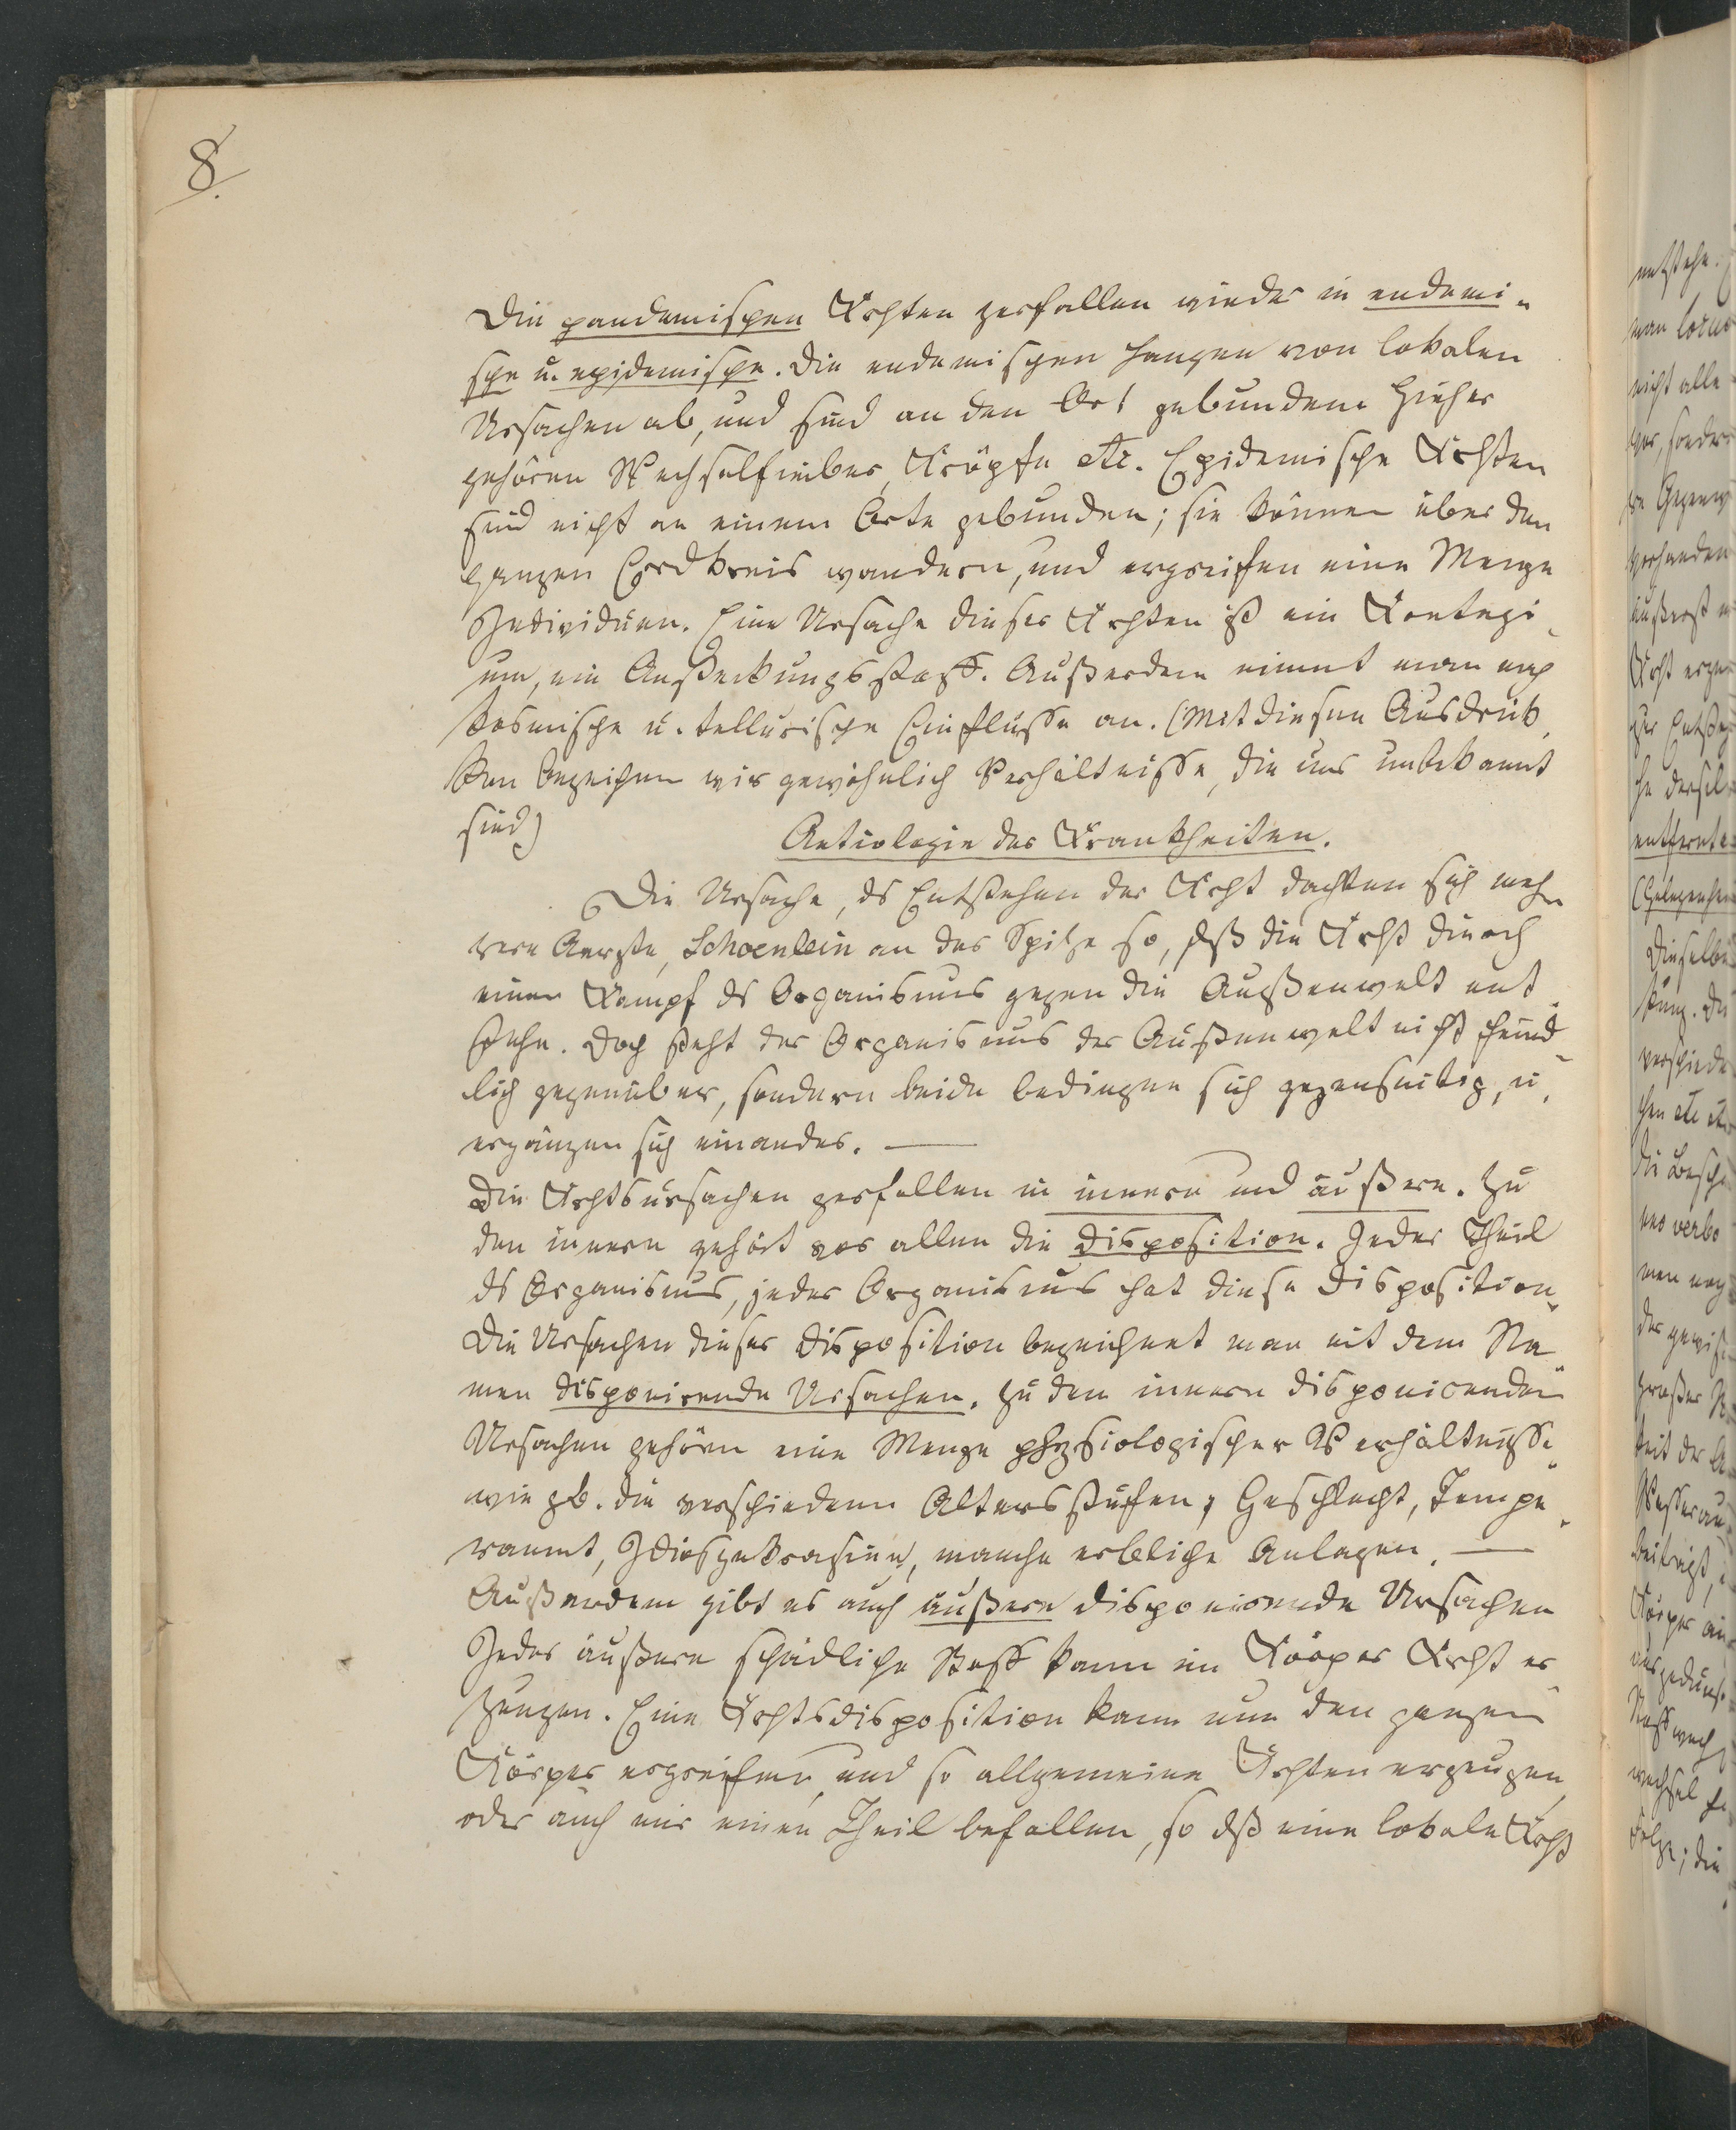 8.
Die pandemischen Krkhten zerfallen wieder in endemi-
sche u. epidemische. Die endemischen hangen von lokalen
Ursachen ab, und sind an den Ort gebunden. Hieher
gehören Wechselfieber, Kröpfe etc. Epidemische Krkhten
sind nicht an einem Orte gebunden; sie können über den
ganzen Erdkreis wandern, und ergreifen eine Menge
Individuen. Eine Ursache dieser Krkhten ist ein Kontagi-
um, ein Ansteckungsstoff. Außerdem nimmt man noch
kosmische u. tellurische Einflüsse an. (Mit diesen Ausdrük-
ken bezeichnen wir gewöhnlich Verhältnisse, die uns unbekannt
sind)
Aetiologie der Krankheiten.
Die Ursache, ds Entstehen der Krkht dachten sich meh-
rere Aerzte, Schoenlein an der Spitze so, dß die Krkht durch
einen Kampf ds Organismus gegen die Außenwelt ent-
stehe. Doch steht der Organismus der Außenwelt nicht feind-
lich gegenüber, sondern beide bedingen sich gegenseitig, u.
ergänzen sich einander. —
Die Krkhtsursachen zerfallen in innere und äußere. Zu
den innern gehört vor allen die Disposition. Jeder Theil
ds Organismus, jeder Organismus hat diese Disposition.
Die Ursachen dieser Disposition bezeichnet man mit dem Na-
men disponirende Ursachen. Zu den innern disponirenden
Ursachen gehören eine Menge physiologischer Verhältnisse
wie zb. die verschiedenen Altersstufen, Geschlecht, Tempe-
rament, Idiosyncrasieen, manche erbliche Anlagen. —
Außerdem gibt es auch äußere disponirende Ursachen
Jeder äußere schädliche Stoff kann im Körper Krkht er-
zeugen. Eine Krkhtsdisposition kann nun den ganzen
Körper ergreifen, und so allgemeine Krkhten erzeugen,
oder auch nur einen Theil befallen, so dß eine lokale Krkht